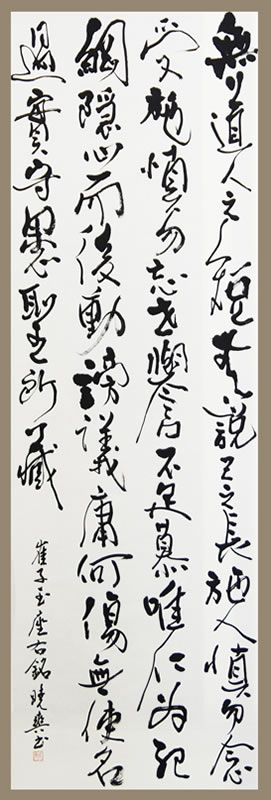 無道人之短無說己之長施人慎勿念
受施慎勿忘世譽不足慕唯仁為紀
綱隱心而後動謗議庸何傷無使名
過實守愚聖所臧
崔子玉座右銘 曉書